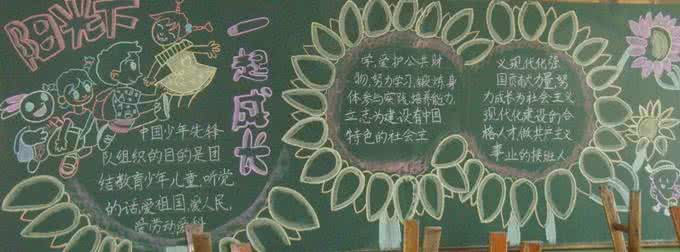 阳光下
一起成长
中国少年先锋
队组织的目的是团
结教育少年儿童,听党
的话,爱祖国,爱人民,
爱劳动,爱科
学,爱护公共财
物,努力学习,锻炼身
体,参与实践,培养能力,
立志为建设有中国
特色的社会主
义现代化强
国贡献力量,努
力成长为社会主义
现代化建设的合
格人才,做共产主义
事业的接班人